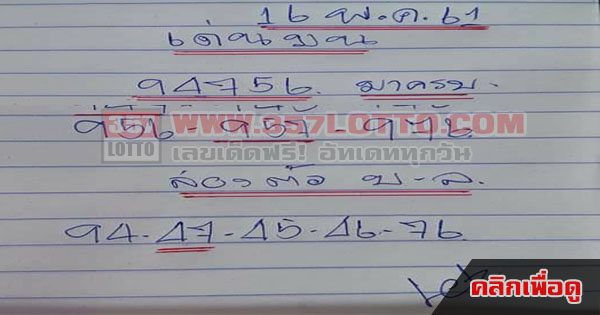 16 พ.ค. 61
เด่นบน
94756. มาครบ.
956 - 957 - 976
357 LOTTO WWW.357LOTTO.COM
เลขเด็ดฟรี! อัทเดททุกวัน
สองตัว บ-ล.
94-47-45-46-76
คลิกเพื่อดู